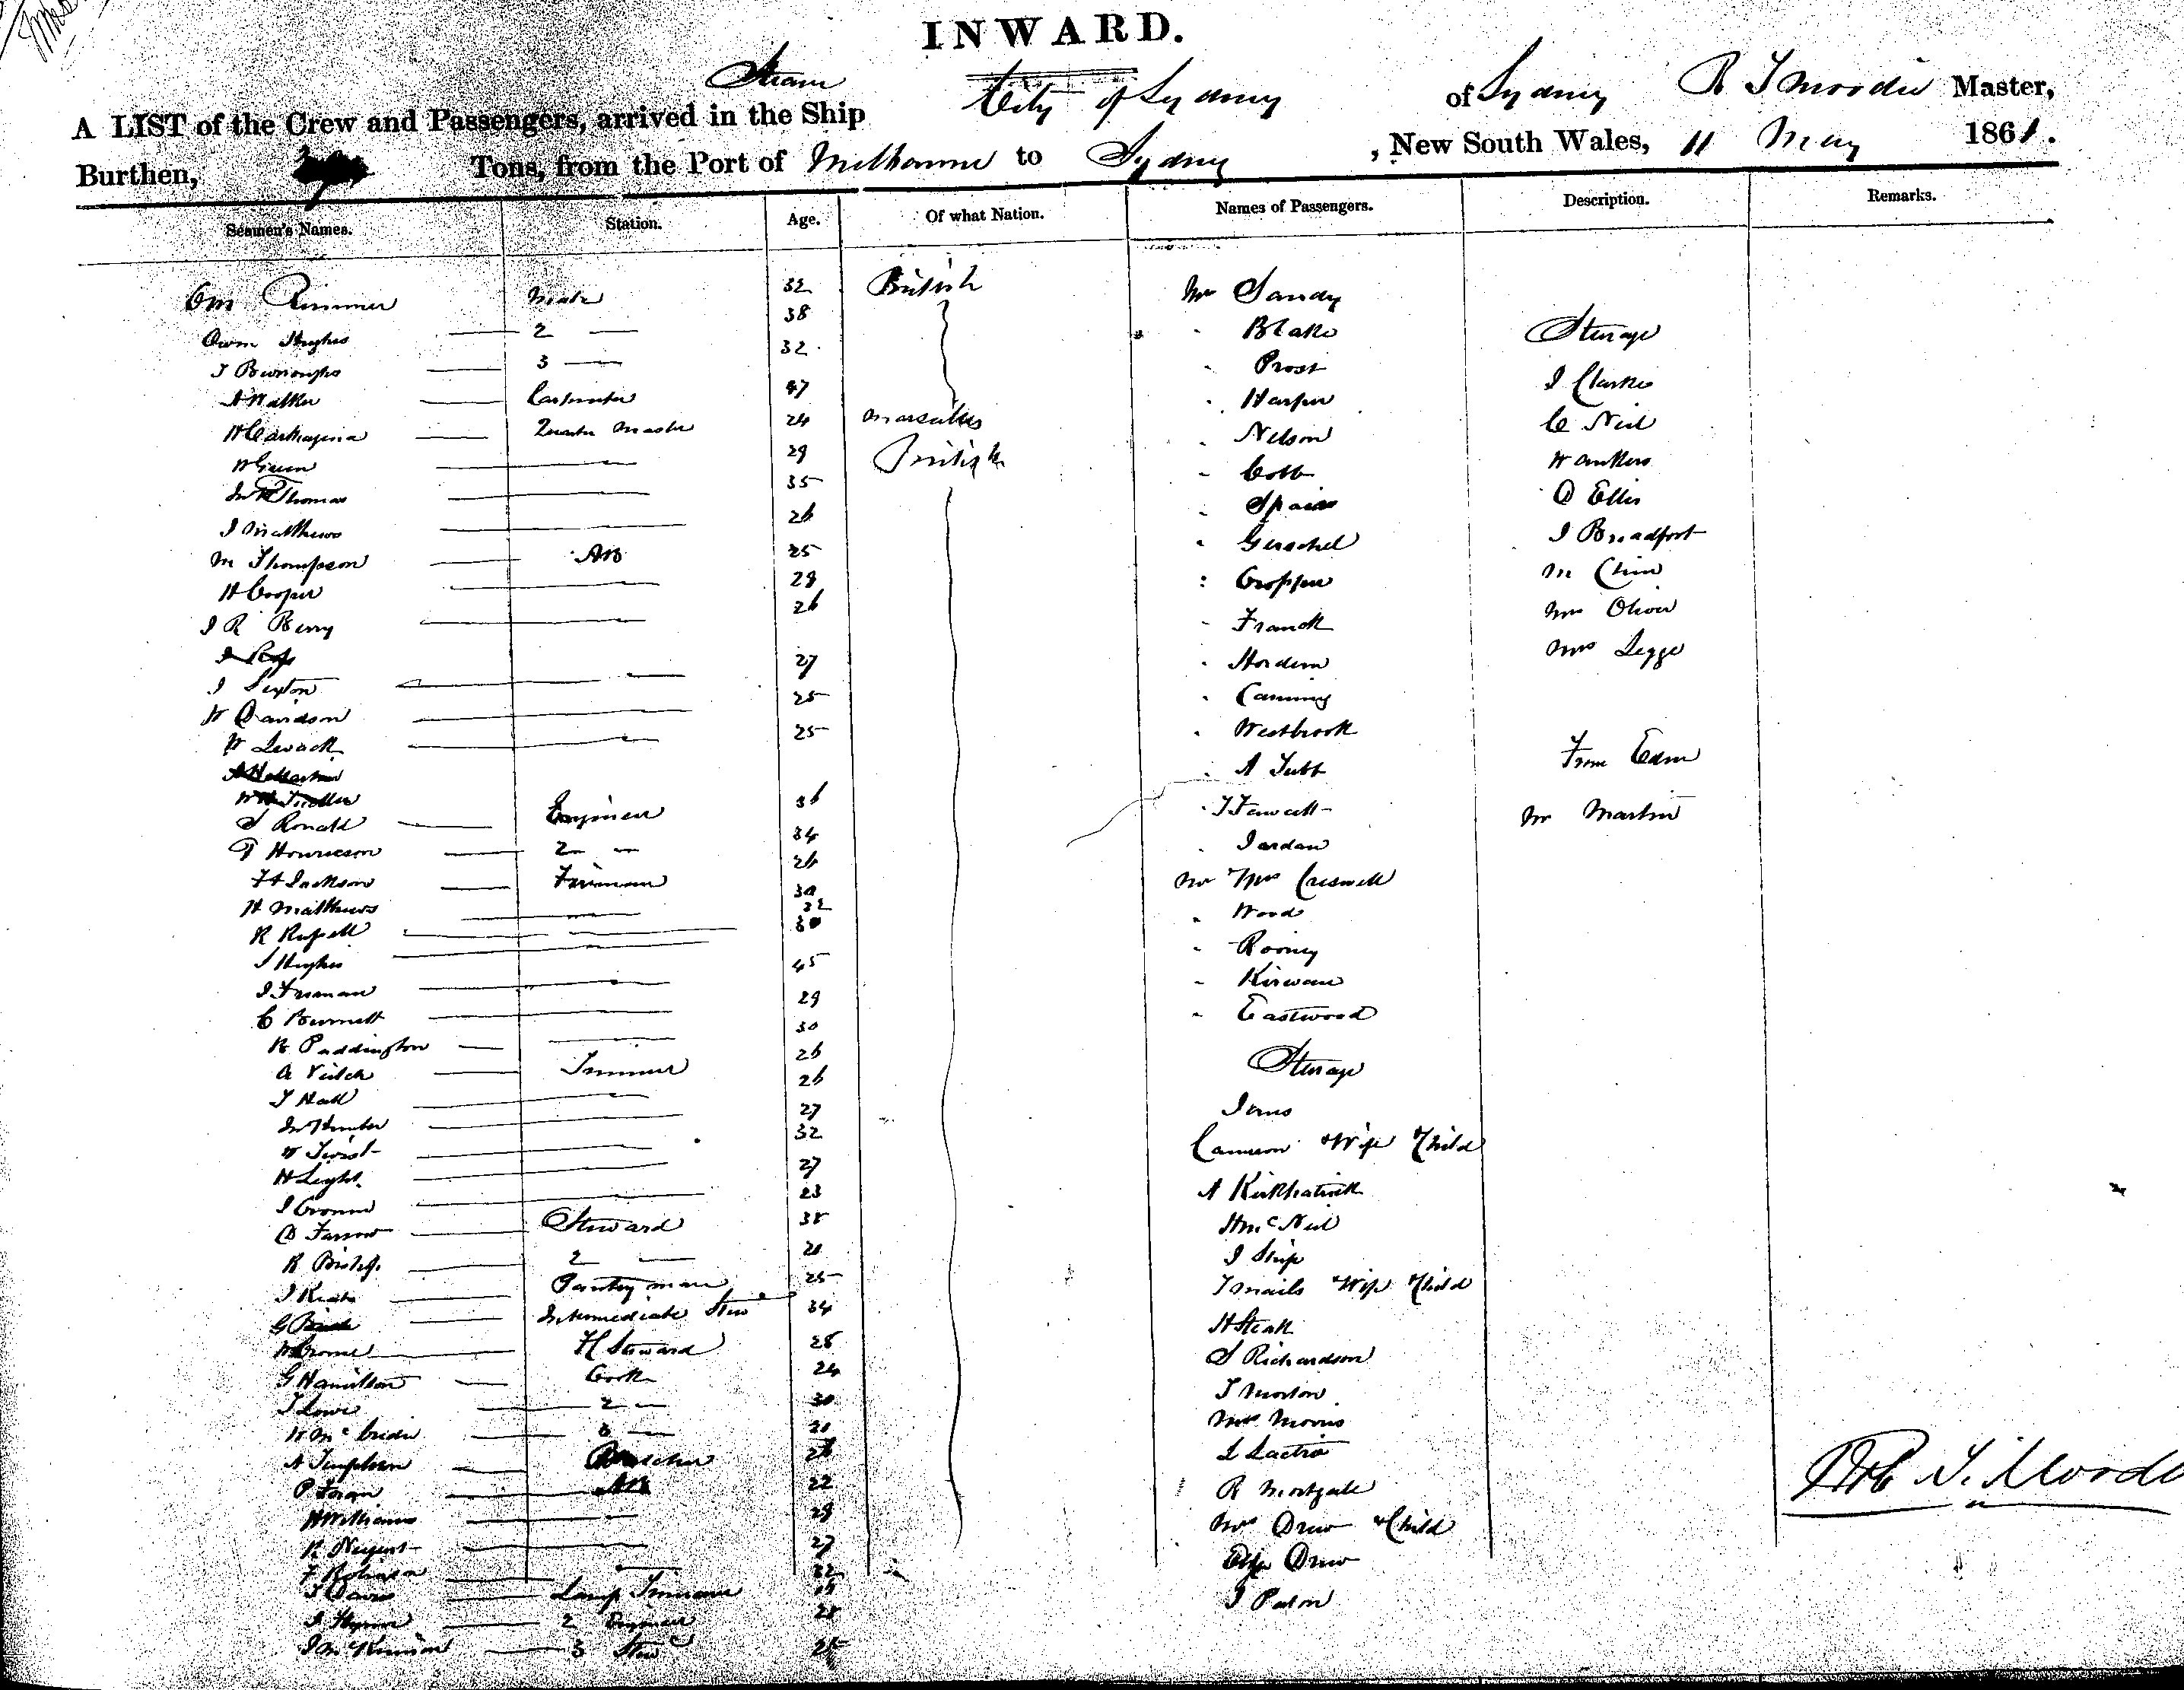 INWARD.
Steam
A LIST of the Crew and Passengers, arrived in the Ship City of Sydney of Sydney R T Moodie Master,
Burthen, Tons, from the Port of Melbourne to Sydney, New South Wales, 11 May 1861.
Seamen's Names. Station. Age. Of what Nation. Names of Passengers. Description. Remarks.
Wm Rimmer Mate 32 British
Owen Hughes 2 38
T Burroughs 3 32
A Walker Carpenter 47
H Carthagena Quarter Master 24 Marseilles
W Green 29 British
Jn R Thomas 35
J Matthews 26
M Thompson AB 25
H Cooper 29
J R Berry 26
J Sexton 27
W Davidson 25
W Levack 25
S Ronald Engineer 36
T Howieson 2 34
H Jackson Fireman 26
H Matthews 30
R Russell 32
J Hughes 30
J Freeman 45
C Burnett 29
R Paddington 30
A Veitch Trimmer 26
T Hall 26
Jn Hunter 27
W Twist 32
H Light 27
J Cronin 23
D Farrow Steward 38
R Bishop 2
J Keats Pantry man 25
G Intermediate Stew 34
W Crome F Steward 28
G Hamilton Cook 24
J Lowe 2 30
W McBride 3
A Templeton Butcher 26
P Foran AB 22
H Williams 29
R Nugent 27
F Robinson 32
T Davis Lamp Trimmer
2 Engineer 28
J McKinnon 3 Stew 25
Mr Sandy
" Blake
" Prost
" Harper
" Nelson
" Cobb
" Spain
" Gerschel
" Cropper
" Franck
" Hordern
" Canning
" Westbrook
" A Tubb
" T Fawcett
" Jordan
Mr Mrs Creswell
" Wood
" Rooney
" Kirwan
" Eastwood
Sterage
Cameron Wife & Child
A Kirkpatrick
H McNeil
J Ship
T Mails Wife & Child
H Steak
S Richardson
T Morton
Mrs Morris
R Mortgale
Mrs Drew & Child
Drew
J Paton
Sterage
J Clarke
C Neil
W Ankers
D Ellis
J Broadfoot
M Chin
Mrs Oliver
Mrs Legge
From Eden
Mr Martin
Rob T. Moodie